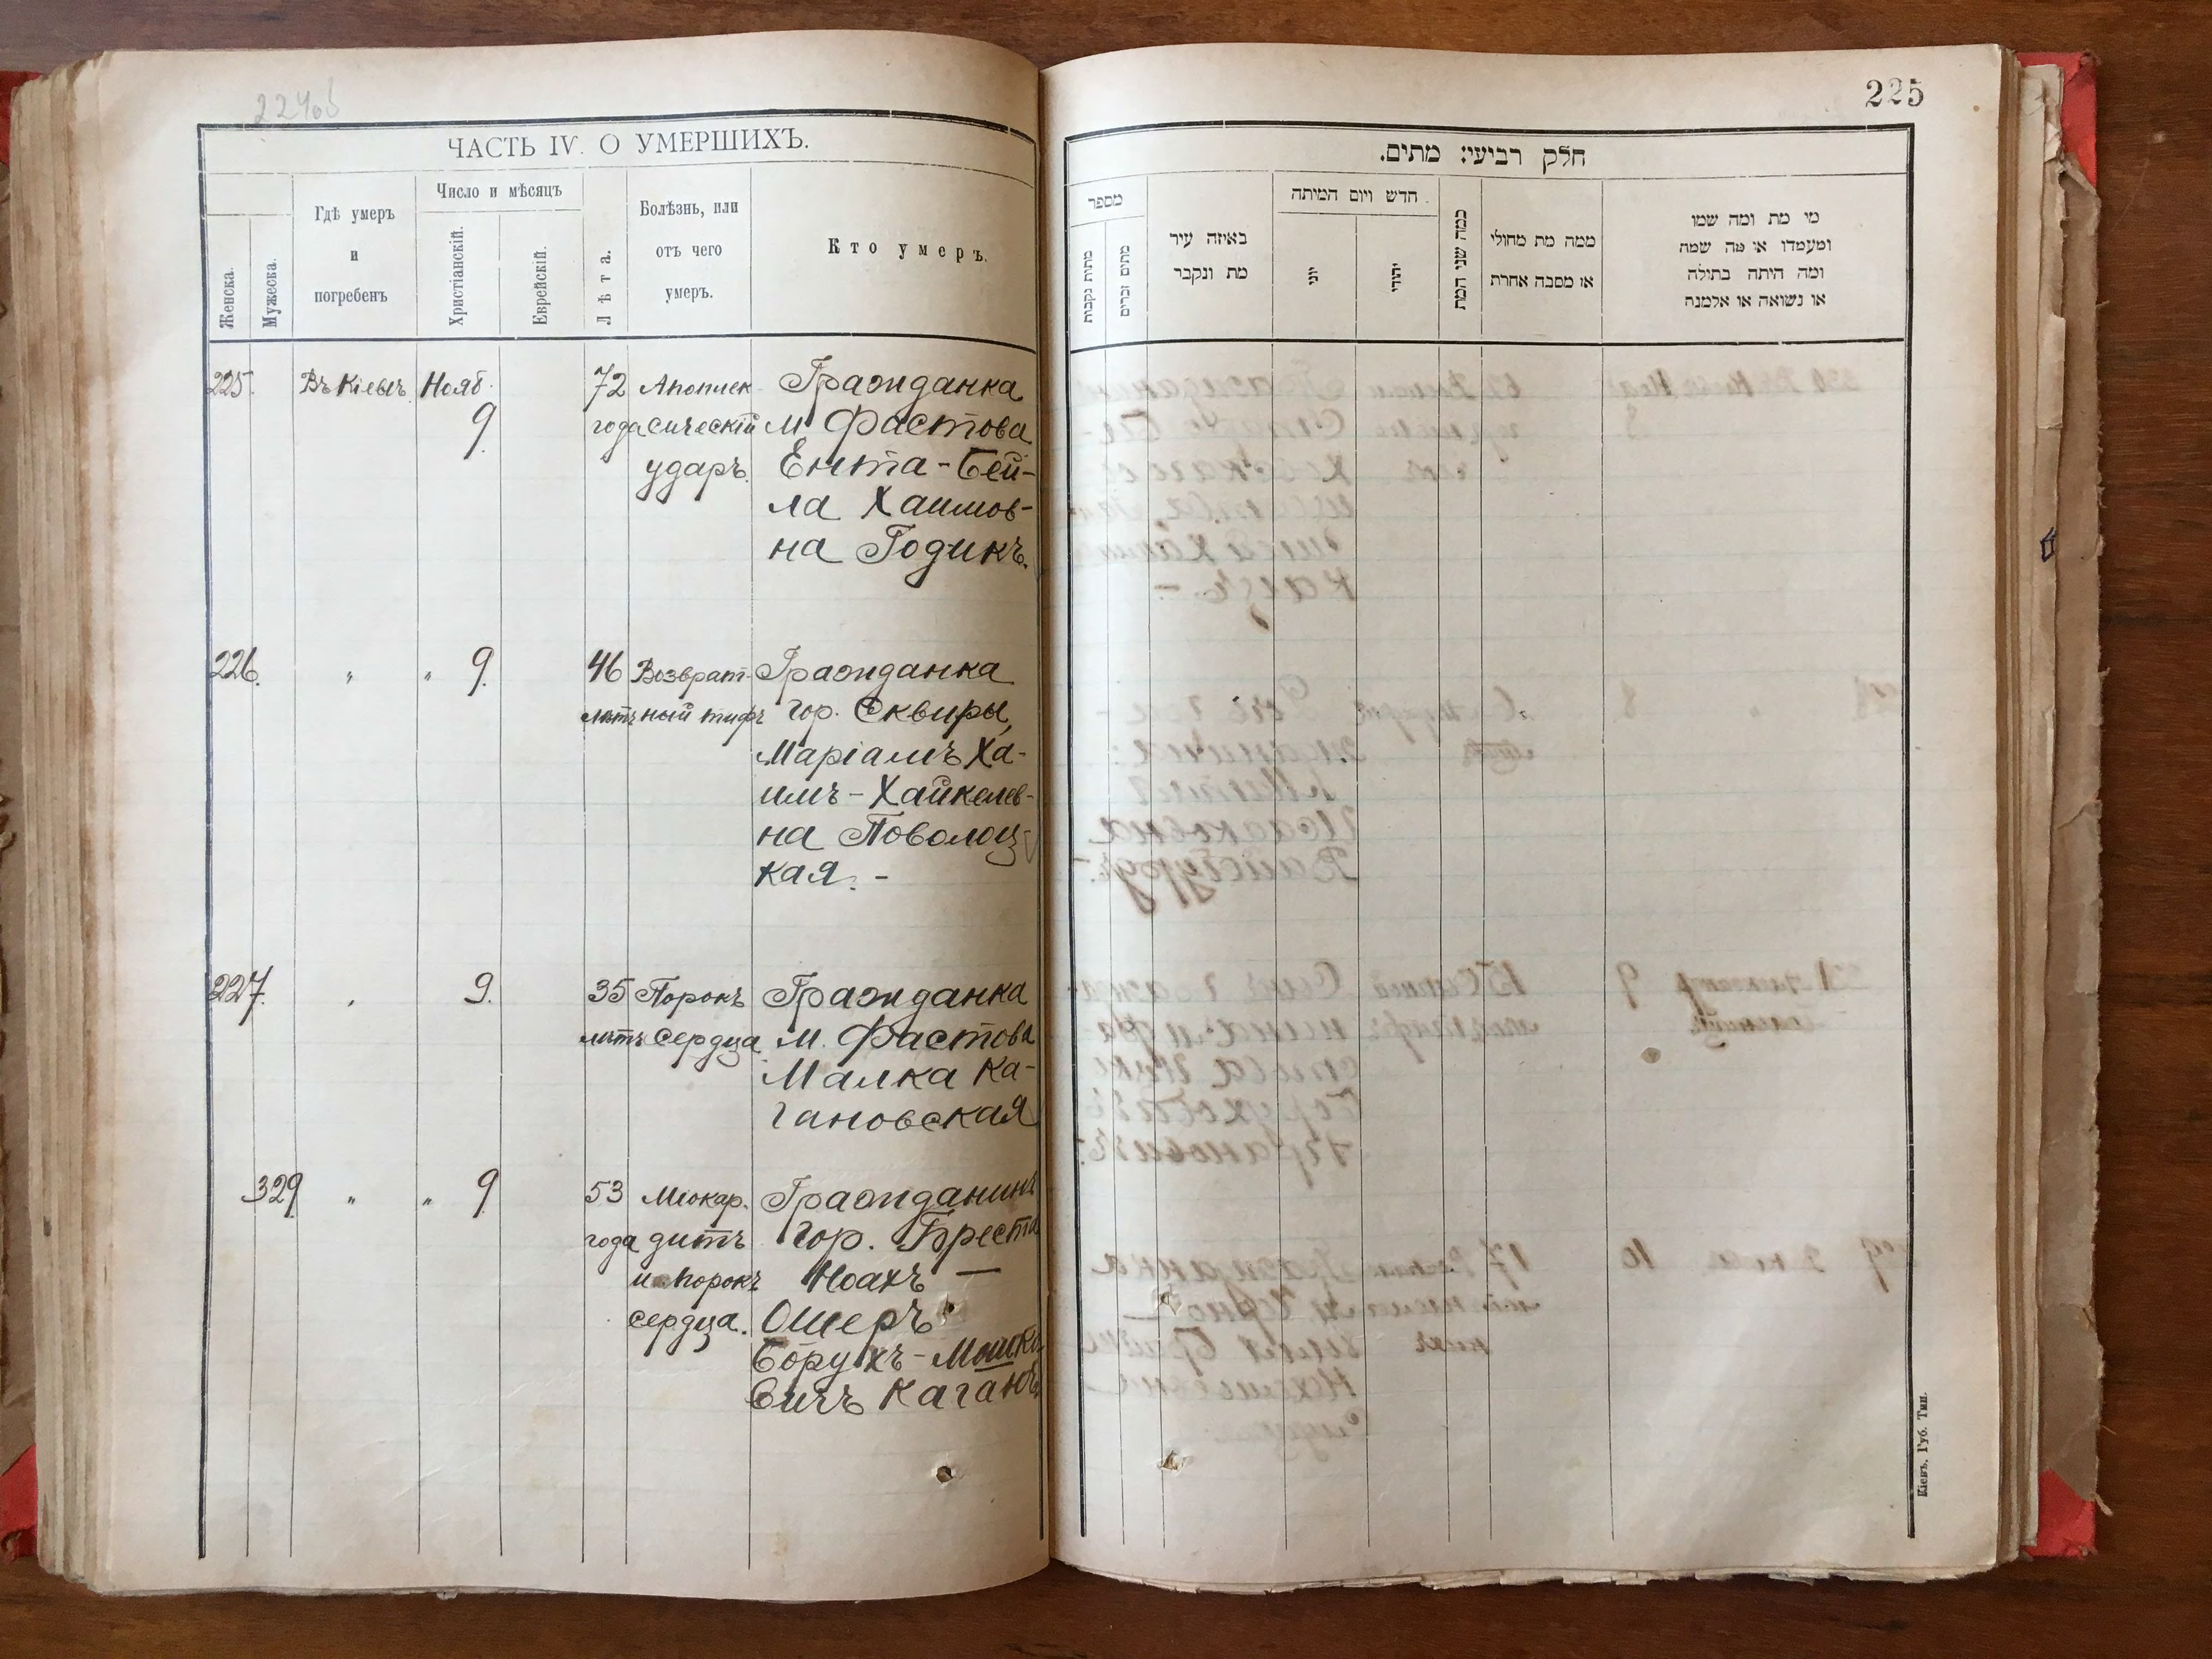 224об
ЧАСТЬ IV. О УМЕРШИХЪ.
Женска.
Мужеска.
Гдѣ умеръ
и
погребенъ
Число и мѣсяцъ
Христіанскій.
Еврейскій.
Лѣта.
Болѣзнь, или
отъ чего
умеръ.
Кто умеръ.
225. Въ Кіевѣ Нояб. 72 Апоплек- Гражданка
9. года сическій м. Фастова
ударъ. Ента-Бей-
ла Хаимов-
на Годикъ.
226. " " 9. 46 Возврат- Гражданка
лѣтъ ный тифъ гор. Сквиры,
Маріамъ Ха-
имъ-Хайкелев-
на Поволоц-
кая. -
227. " 9. 35 Порокъ Гражданка
лѣтъ сердца м. Фастова
Малка Ка-
гановская
329 " " 9 53 Міокар- Гражданинъ
года дитъ гор. Бреста
и порокъ Ноахъ —
сердца. Ошеръ
Борухъ-Мошко
вичъ Каганъ
225
חלק רביעי: מתים.
מספר
מתות נקבות
מתים זכרים
באיזה עיר
מת ונקבר
חדש ויום המיתה
יוני
יהודי
כמה שני המת
ממה מת מחולי
או מסבה אחרת
מי מת ומה שמו
ומעמדו או מה שמה
ומה היתה בתולה
או נשואה או אלמנה
Кіевъ, Губ. Тип.